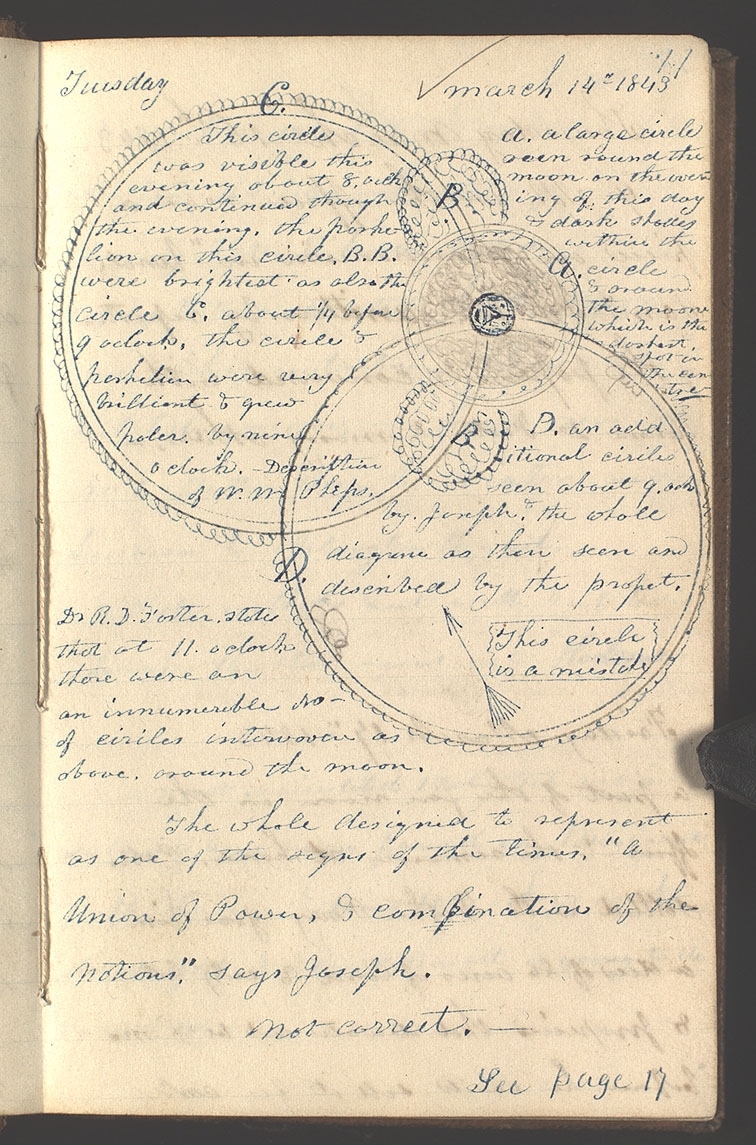 11
Tuesday
march 14th 1843
C.
This circle
was visible this
evening about 8, oclk
and continued though
the evening, the parhe-
lion on this circle, B. B.
were brightest as also the
circle C. about 1/4 before
9 oclock, the circle &
parhelion were very
brilliant & grew
paler. by nine
oclock. - Description
of W. W. Pheps.
A. a large circle
seen round the
moon on the even
ing of this day
& dark shades
within the
circle
& around
the moon
which is the
darkest
spot in
the cen
tre
B.
A.
B
D. an add
itional circle
seen about 9, oclk
by. Joseph, & the whole
diagram as then seen and
described by the prophet.
D.
This circle
is a mistake
Dr R. D. Foster. states
that at 11. oclock
there were an
an innumerible no-
of circles interwoven as
above. around the moon.
The whole designed to represent
as one of the signs of the times, "a
Union of Power, & combination of the
Nations," says Joseph.
Not correct. —
See page 17